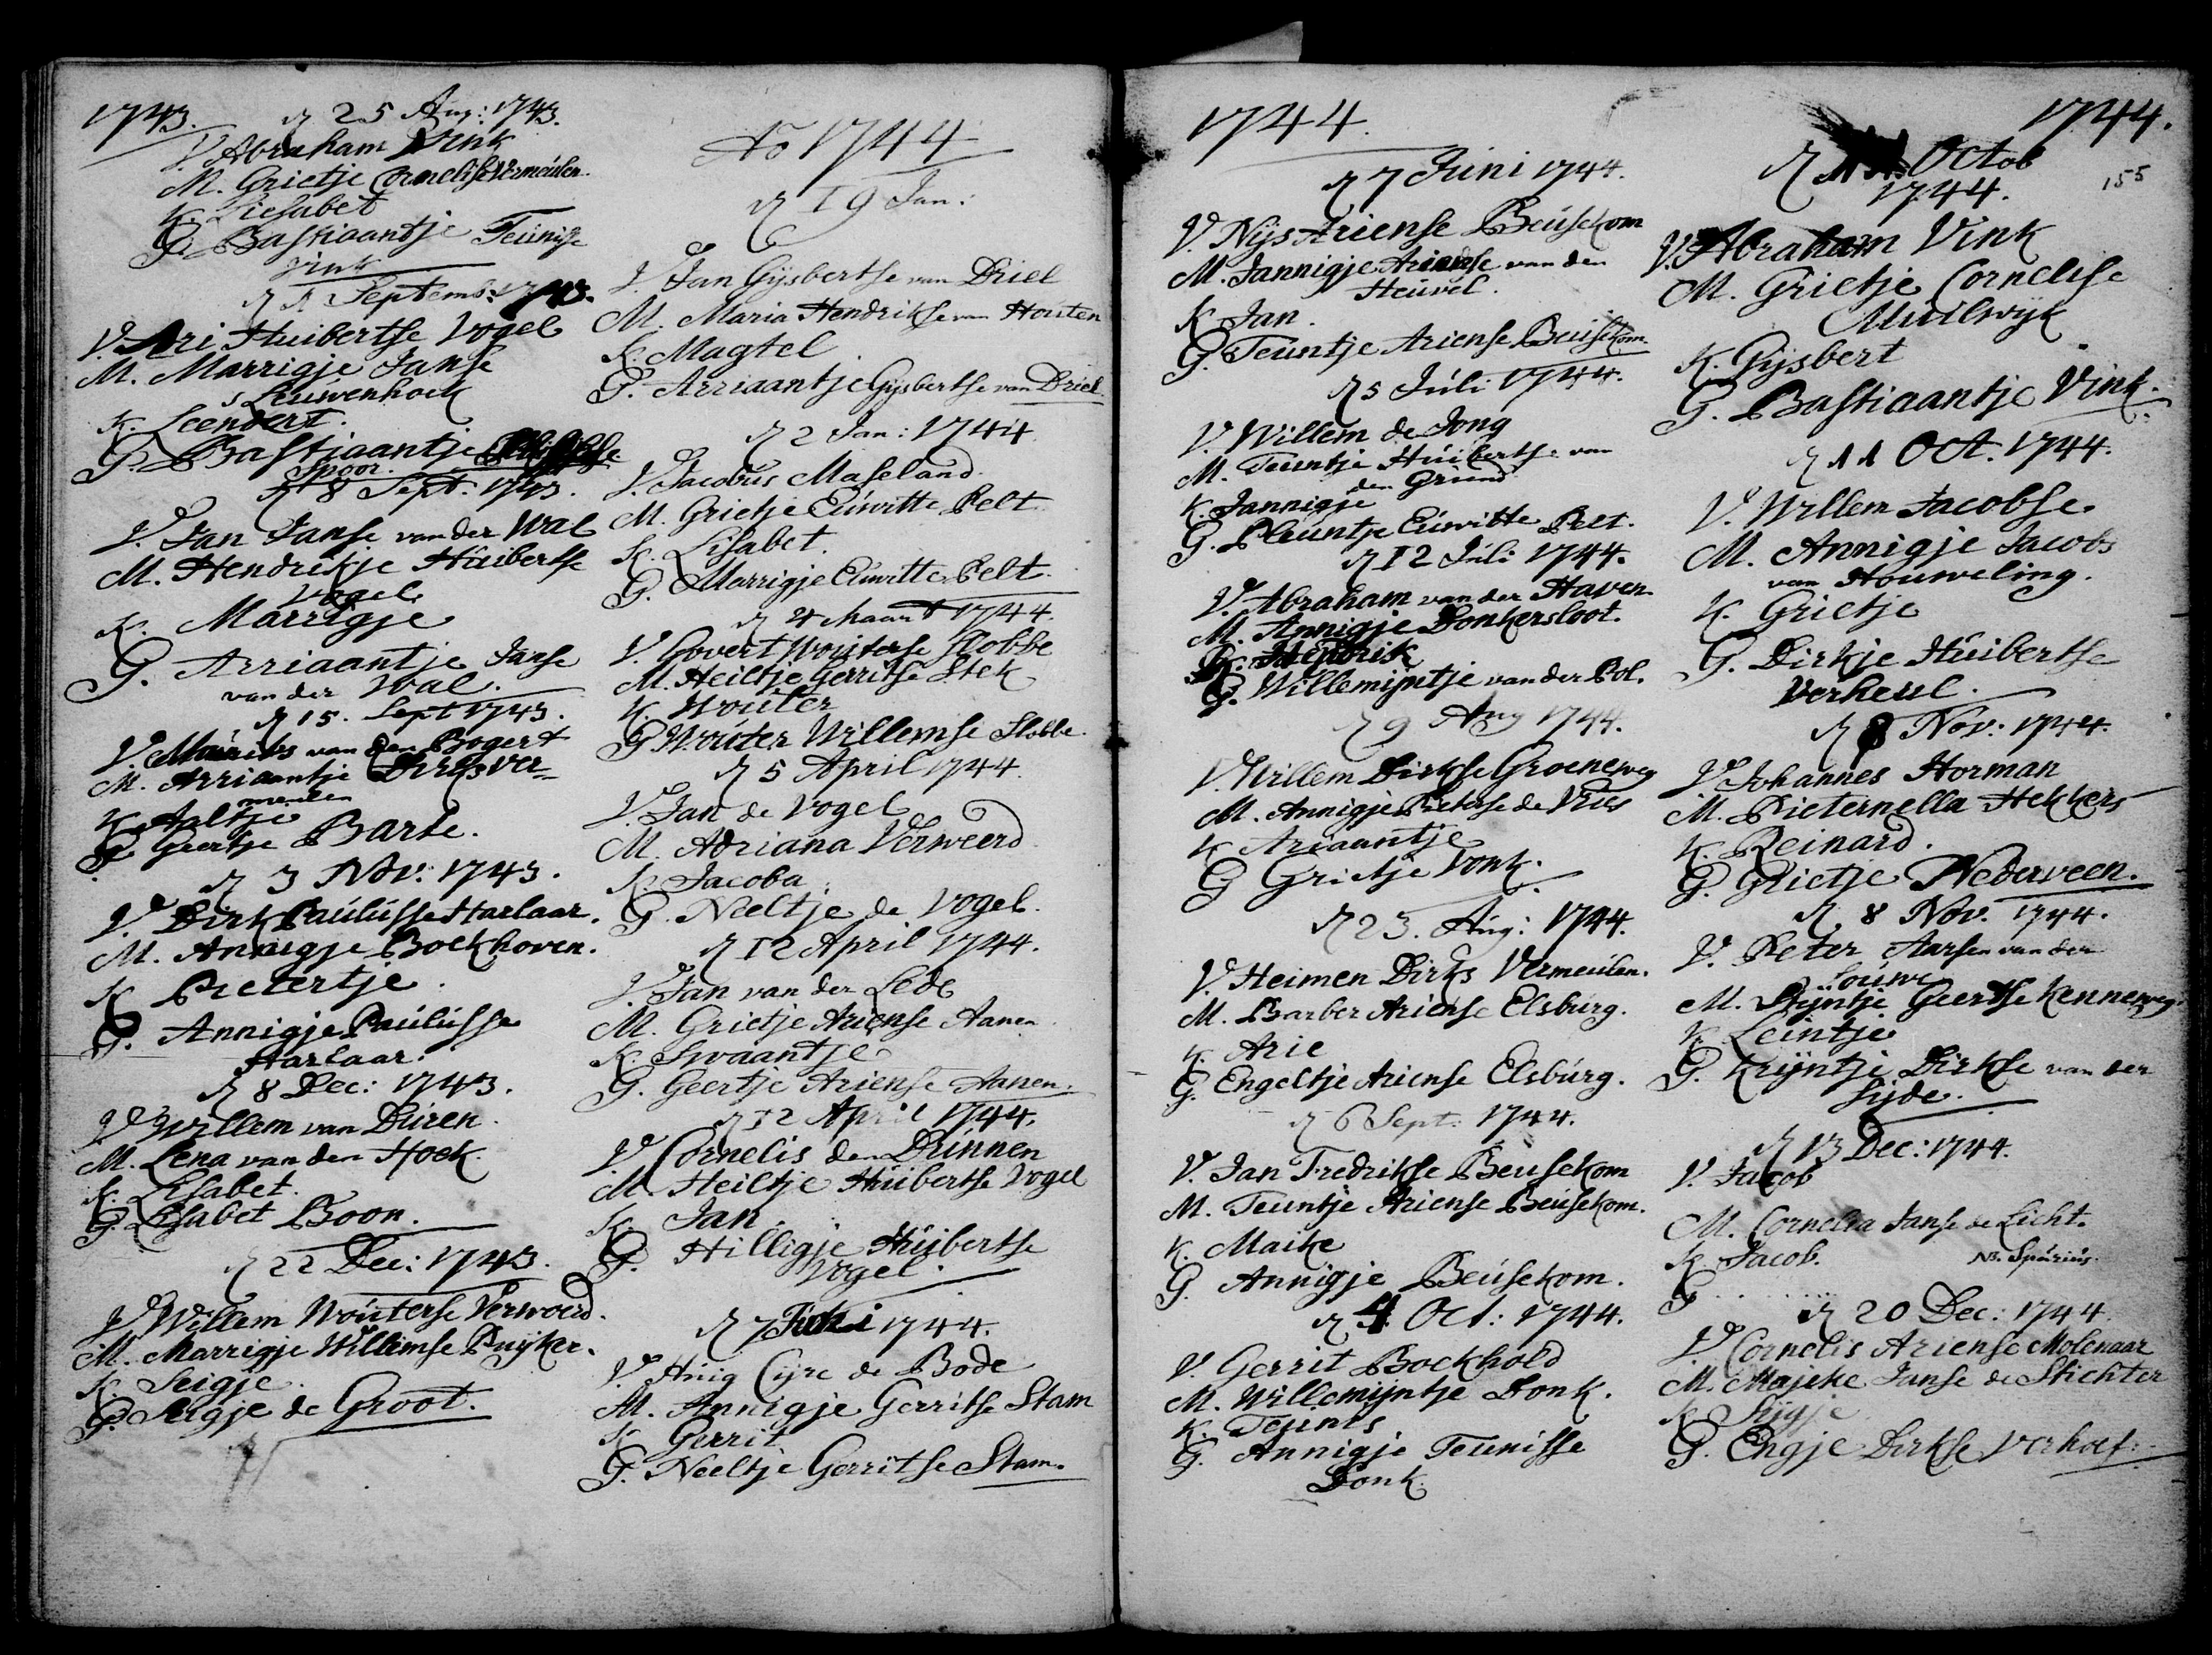 1743.
d 25 Aug: 1743.
V. Abraham Vink
M. Grietje Cornelisse Vermeulen.
K. Liesabet
G. Bastiaantje Teunisse
Vink
d 1 Septemb: 1743.
V. Ari Huibertse Vogel
M. Marrigje Janse
Leuwenhoek
K. Leendert.
G. Bastiaantje
Spoor.
d 8 Sept. 1743.
V. Jan Janse van der Wal
M. Hendrikje Huibertse
Vogel
K. Marrigje
G. Arriaantje Janse
van der Wal.
d 15. Sept 1743.
V. Maurits van den Bogert
M. Arriaantje Dirks Ver=
meulen
K. Aaltje
G. Geertje Barte.
d 3 Nov: 1743.
V. Dirk Paulusse Harlaar.
M. Annigje Boekhoven.
K Pietertje.
G. Annigje Paulusse
Harlaar.
d 8 Dec: 1743.
V Willem van Duren.
M. Lena van den Hoek.
K. Lisabet.
G. Lisabet Boon.
d 22 Dec: 1743.
V Willem Wouterse Verwoerd.
M. Marrigje Willemse Ruyker.
K. Seigje.
G. Seigje de Groot.
Ao 1744
d 19 Jan:
V. Jan Gysbertse van Driel
M. Maria Hendrikse van Houten
K. Magtel
G. Arriaantje Gysbertse van Driel
d 2 Jan: 1744
V. Jacobus Maseland.
M. Grietje Euwitte Pelt
K. Lisabet.
G. Marrigje Euwitte Pelt.
d 4 Maart 1744.
V. Govert Wouterse Slobbe
M. Heiltje Gerritse Stek
K Wouter
G Wouter Willemse Slobbe.
d 5 April 1744.
V. Jan de Vogel
M. Adriana Verweerd
K. Jacoba
G. Neeltje de Vogel.
d 12 April 1744.
V. Jan van der Lede
M. Grietje Ariense Aanen
K. Swaantje
G. Geertje Ariense Aanen.
d 12 April 1744.
V. Cornelis den Dunnen
M. Heiltje Huibertse Vogel
K. Jan
G. Hilligje Huibertse
Vogel.
d 7 Juni 1744.
V. Huig Cyre de Bode
M. Annigje Gerritse Stam
K Gerrit
G. Neeltje Gerritse Stam.
1744.
d 7 Juni 1744.
V. Nijs Ariense Beusekom
M. Jannigje Ariense van den
Heuvel.
K Jan.
G. Teuntje Ariense Beusekom.
d 5 Juli 1744.
V. Willem de Jong
M. Teuntje Huibertse van
den Griend
K. Jannigje
G. Pleuntje Euwitte Pelt.
d 12 Juli 1744.
V. Abraham van der Haven.
M. Annigje Donkersloot.
K. Hendrik
G. Willemijntje van der Pol.
d 9 Aug 1744.
V. Willem Dirkse Groeneweg
M. Annigje Pieterse de Vries
K Ariaantje
G Grietje Vonk.
d 23. Aug: 1744.
V. Heimen Dirks Vermeulen.
M. Barber Ariense Elsburg.
K. Arie
G. Engeltje Ariense Elsburg.
d 6 Sept. 1744.
V. Jan Fredrikse Beusekom
M. Teuntje Ariense Beusekom.
K. Maike
G. Annigje Beusekom.
d 4 Oct: 1744.
V. Gerrit Boekhold
M. Willemijntje Donk.
K. Teunis
G. Annigje Teunisse
Donk.
1744.
155
d 11 Octob
1744.
V. Abraham Vink
M. Grietje Cornelisse
Muilwyk
K. Gysbert
G. Bastiaantje Vink.
d 11 Oct. 1744.
V. Willem Jacobse.
M. Annigje Jacobs
van Houweling.
K. Grietje
G. Dirkje Huibertse
Verheul.
d 8 Nov: 1744.
V. Johannes Horman
M. Pieternella Hekkers
K. Reinard.
G. Grietje Nederveen.
d 8 Nov. 1744.
V. Peter Aarsen van der
Louwe
M. Stijntje Geertse Kenneweg.
K. Leintje
G. Krijntje Dirkse van der
Sijde.
d 13 Dec: 1744.
V. Jacob
M. Cornelia Janse de Licht.
K. Jacob. NB. Spurius.
G. . . . . . .
d 20 Dec: 1744.
V Cornelis Ariense Molenaar
M. Majeke Janse de Stichter
K Sijgje
G. Engje Dirkse Verhoef.